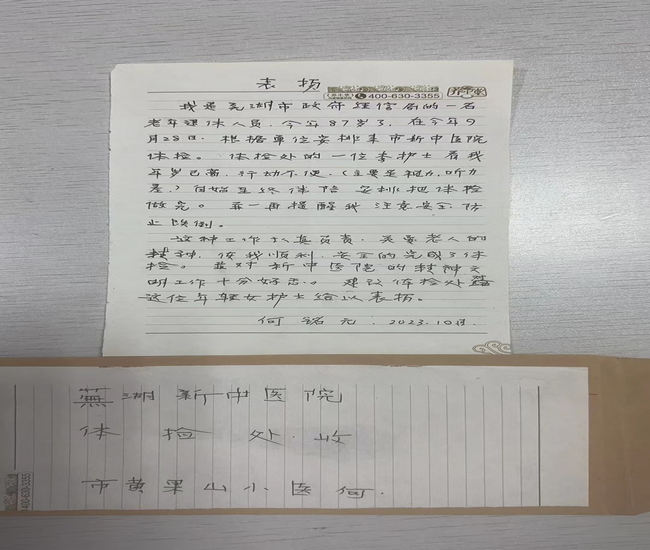 表 扬
400-630-3355
我是芜湖市政府经信局的一名
老年退休人员，今年87岁了，在今年9
月28日，根据单位安排来市新中医院
体检。体检处的一位李护士看我
年岁已高，行动不便，（主要是视力，听力
差，）自始至终体陪安排把体检
做完。并一再提醒我注意安全，防
止跌倒。
这种工作认真负责，关爱老人的
精神，使我顺利，安全的完成了体
检。
新中医院的精神文
明工作十分好。建议体检处
这位年轻女护士给以表扬。
何 铭 元 . 2023.10月.
蕪 湖 新 中 医 院
体 检 处 . 收
市 黄 果 山 小 区 何 .
400-630-3355